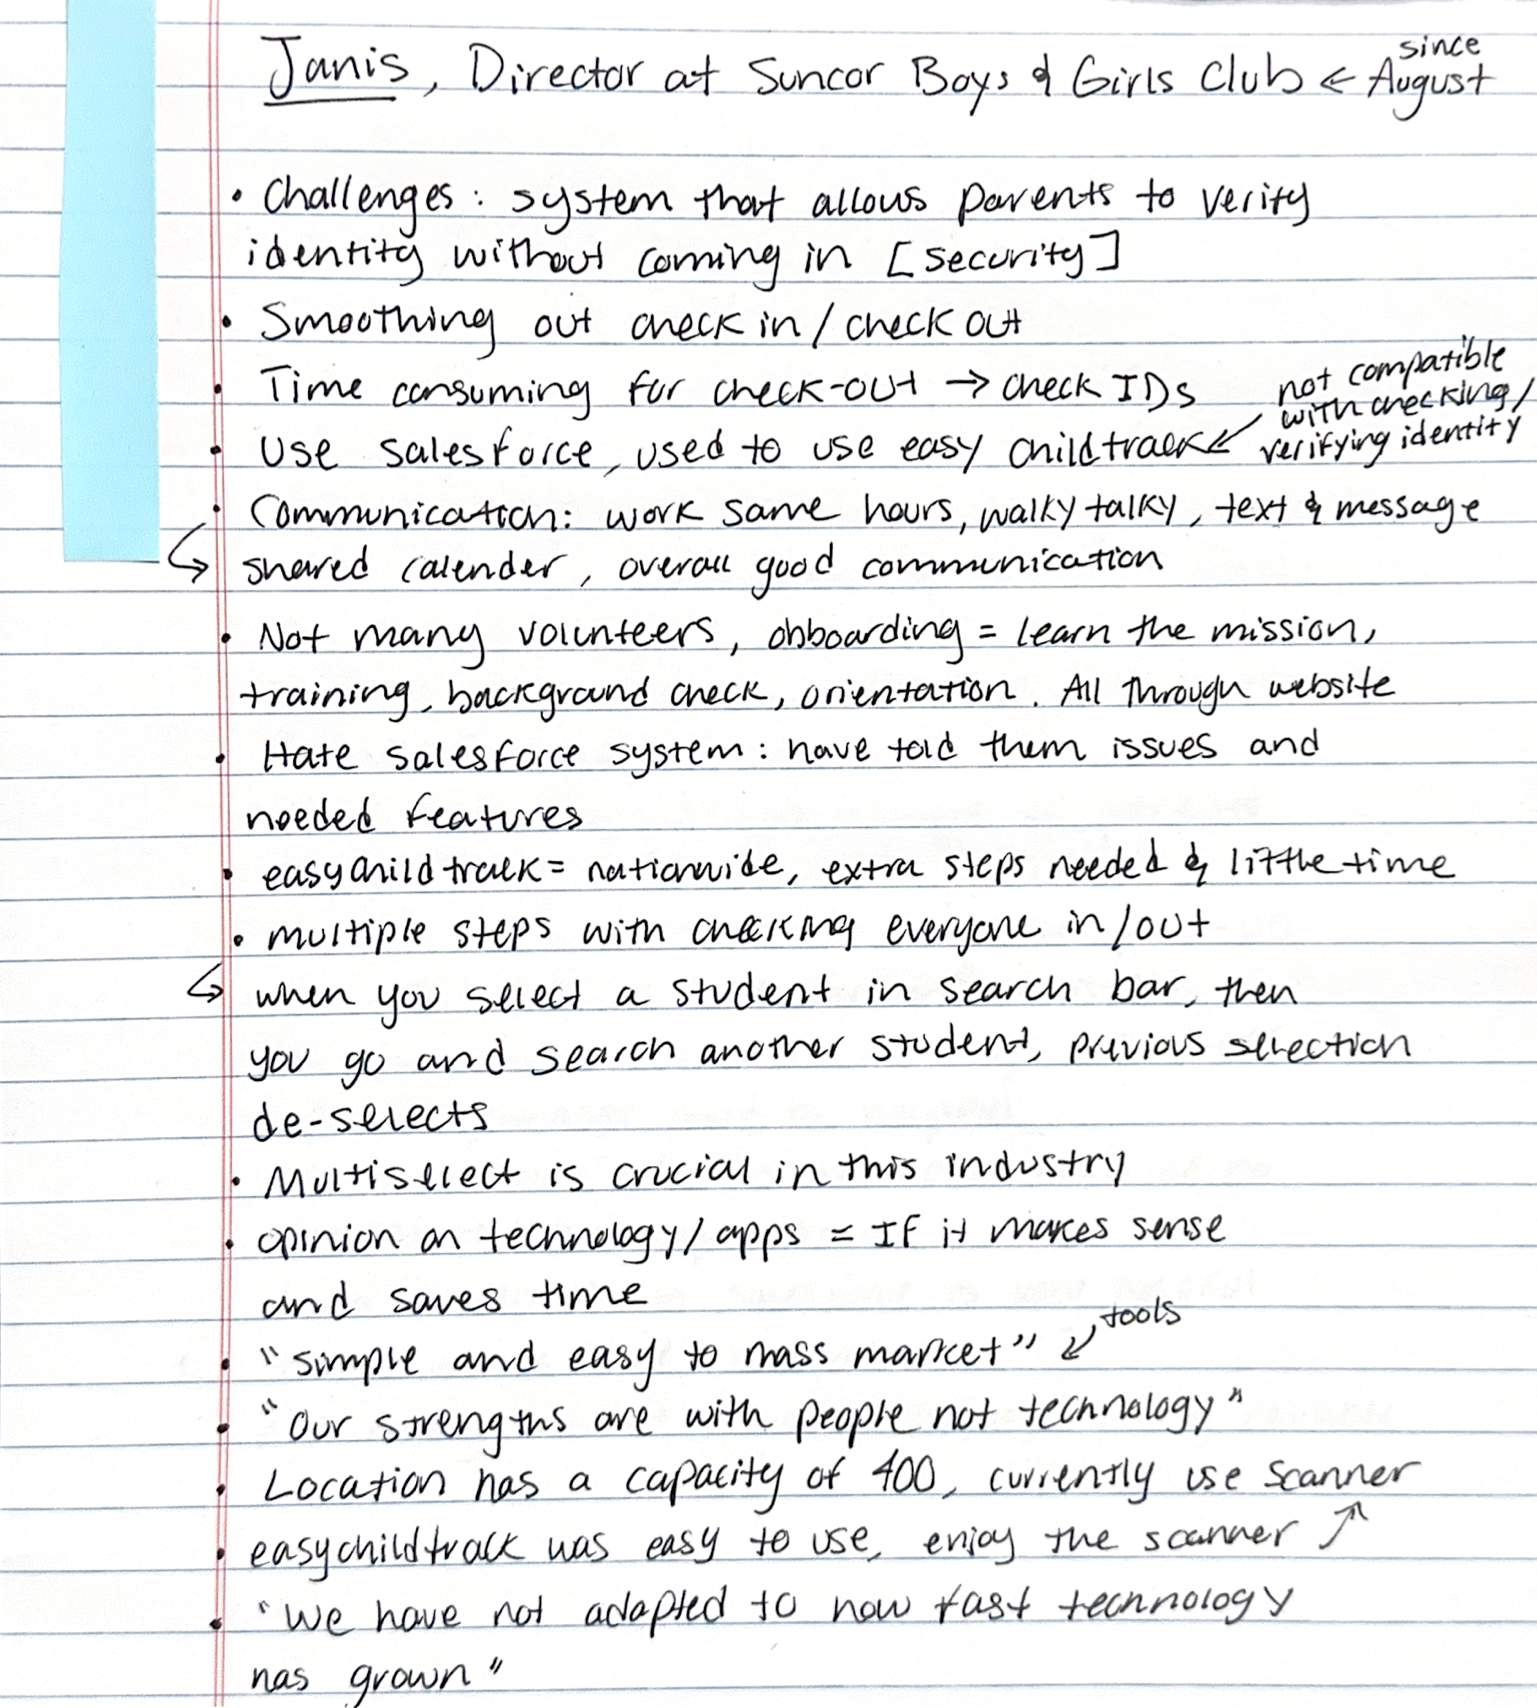 Janis, Director at Suncor Boys & Girls Club ← since August
• Challenges: system that allows parents to verify
identity without coming in [security]
• Smoothing out check in / check out
• Time consuming for check-out → check IDs
not compatible
with checking/
verifying identity
• Use salesforce, used to use easy childtrack ↙
• Communication: work same hours, walky talky, text & message
↳ shared calender, overall good communication
• Not many volunteers, obboarding = learn the mission,
training, background check, orientation. All through website
• Hate salesforce system: have told them issues and
needed features
• easychildtrack = nationwide, extra steps needed & little time
• multiple steps with checking everyone in/out
↳ when you select a student in search bar, then
you go and search another student, previous selection
de-selects
• Multiselect is crucial in this industry
• opinion on technology/apps = If it makes sense
and saves time
• "simple and easy to mass market" ↙ tools
• "Our strengths are with people not technology"
• Location has a capacity of 400, currently use scanner
• easychildtrack was easy to use, enjoy the scanner ↗
• "We have not adapted to how fast technology
has grown"